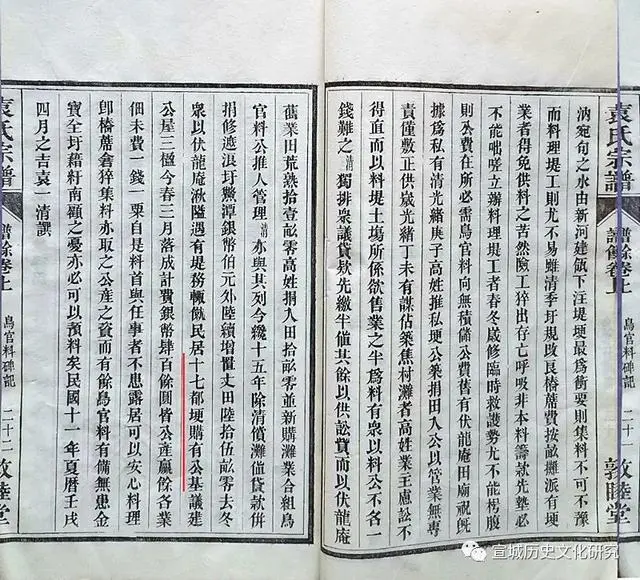 袁氏宗譜
譜餘卷上
鳥官料碑記
二十二
敦睦堂
沔宛句之水由新河建瓴下注堤埂最為衝要則集料不可不豫
而料理堤工則尤不易難清季圩規改良樁蓆費按畝攤派有埂
業者得免供料之苦然險工猝出存亡呼吸非本料籌款先墊必
不能咄嗟立辦料理堤工者春冬歲修臨時救護勢尤不能枵腹
則公費在所必需鳥官料向無積儲公費舊有伏龍庵田廟祝旣
據為私有清光緒庚子高姓推私埂公捐田入公以管業無專
責僅敷正供歲光緒丁未有謀佔築焦村灘者高姓業主慮訟不
得直而以料堤土塲所係欲售業之半為料有衆以料公不名一
錢難之清獨排衆議貸欵先繳半値其餘以供訟貲而以伏龍庵
舊業田荒熟拾壹畝零高姓捐入田拾畝零並新購灘業合組鳥
官料公推人管理清亦與其列今纔十五年除清償灘値貸款併
捐修遮浪圩潭銀幣伯元外陸續增置丈田陸拾伍畝零去冬
衆以伏龍庵湫隘遇有堤務輒僦民居十七都埂購有公基議建
公屋三楹今春三月落成計費銀幣肆百餘圓皆公產贏餘各業
佃未費一錢一粟自是料首與任事者不患露居可以安心料理
卽樁蓆畚猝集料亦取之公產之資而有餘鳥官料有備無患金
寶全圩藉紓南顧之憂亦必可以預料矣民國十一年夏曆壬戌
四月之吉袁一清譔
袁氏宗譜
譜餘卷上
鳥官料碑記
二十二
敦睦堂
宣城历史文化研究